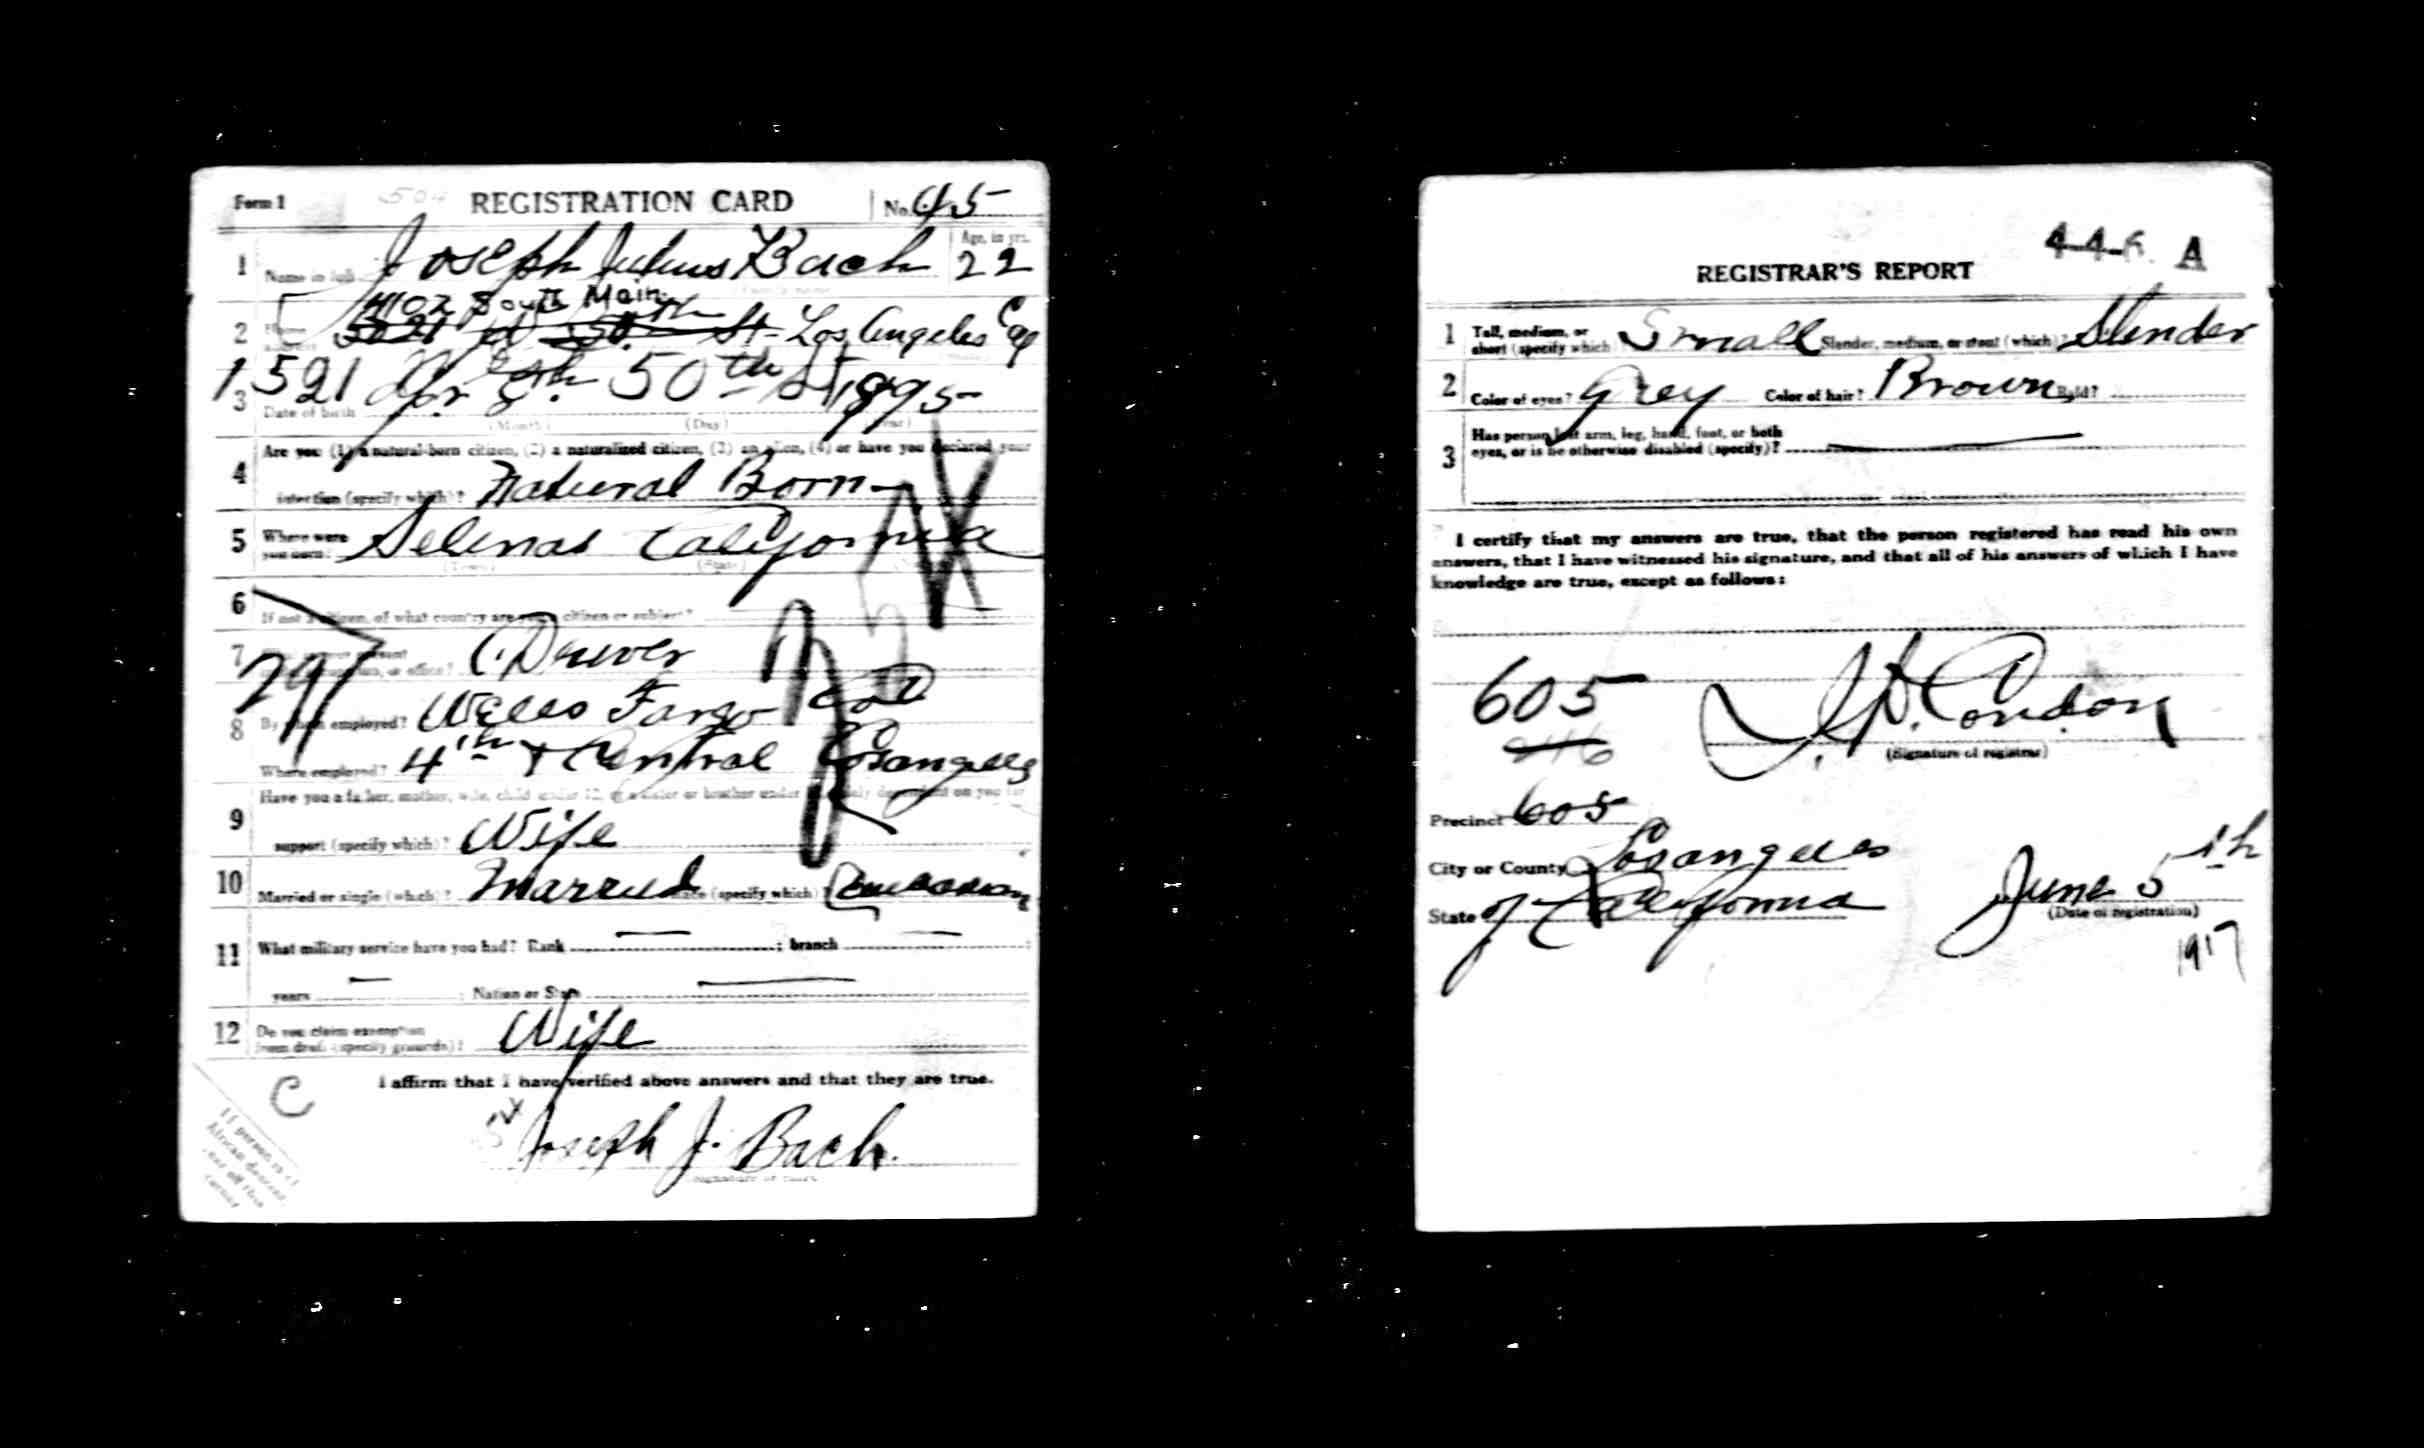 Form 1 504 REGISTRATION CARD No. 45
1 Name in full Joseph Julius Bach Age, in yrs. 22
4102 South Main
2 Home address St. Los Angeles Cal
1521 50th St
3 Date of birth Apr 8th 1895
(Month) (Day) (Year)
4 Are you (1) a natural-born citizen, (2) a naturalized citizen, (3) an alien, (4) or have you declared your
intention (specify which)? Natural Born
5 Where were you born? Selenas California
(Town) (State)
6 If not a citizen, of what country are you a citizen or subject?
7 Driver
297
8 By whom employed? Wells Fargo
Where employed? 4th & Central Losangeles
9 Have you a father, mother, wife, child under 12, or a sister or brother under solely dependent on you for
support (specify which)? Wife
10 Married or single (which)? Married Race (specify which)? Caucasian
11 What military service have you had? Rank ; branch ;
years ; Nation or State
12 Do you claim exemption from draft (specify grounds)? Wife
I affirm that I have verified above answers and that they are true.
C
Joseph J. Bach.
If person is of
African descent
tear off this
corner
A
REGISTRAR'S REPORT
1 Tall, medium, or short (specify which) Small Slender, medium, or stout (which)? Slender
2 Color of eyes? Grey Color of hair? Brown Bald?
3 Has person lost arm, leg, hand, foot, or both
eyes, or is he otherwise disabled (specify)?
I certify that my answers are true, that the person registered has read his own
answers, that I have witnessed his signature, and that all of his answers of which I have
knowledge are true, except as follows:
605 Condon
(Signature of registrar)
Precinct 605
City or County Losangeles
State of California June 5th
(Date of registration)
1917